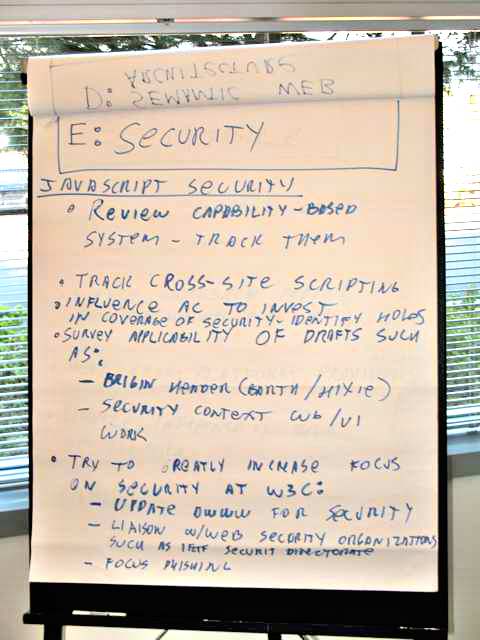 ARCHITECTURE
D: SEMANTIC WEB
E: SECURITY
JAVASCRIPT SECURITY
• REVIEW CAPABILITY-BASED
SYSTEM - TRACK THEM
• TRACK CROSS-SITE SCRIPTING
• INFLUENCE AC TO INVEST
IN COVERAGE OF SECURITY - IDENTIFY HOLES
• SURVEY APPLICABILITY OF DRAFTS SUCH
AS:
- ORIGIN HEADER (BARTH/HIXIE)
- SECURITY CONTEXT WG/UI
WORK
• TRY TO GREATLY INCREASE FOCUS
ON SECURITY AT W3C:
- UPDATE OWWW FOR SECURITY
- LIAISON W/WEB SECURITY ORGANIZATIONS
SUCH AS IETF SECURIT DIRECTORATE
- FOCUS PHISHING